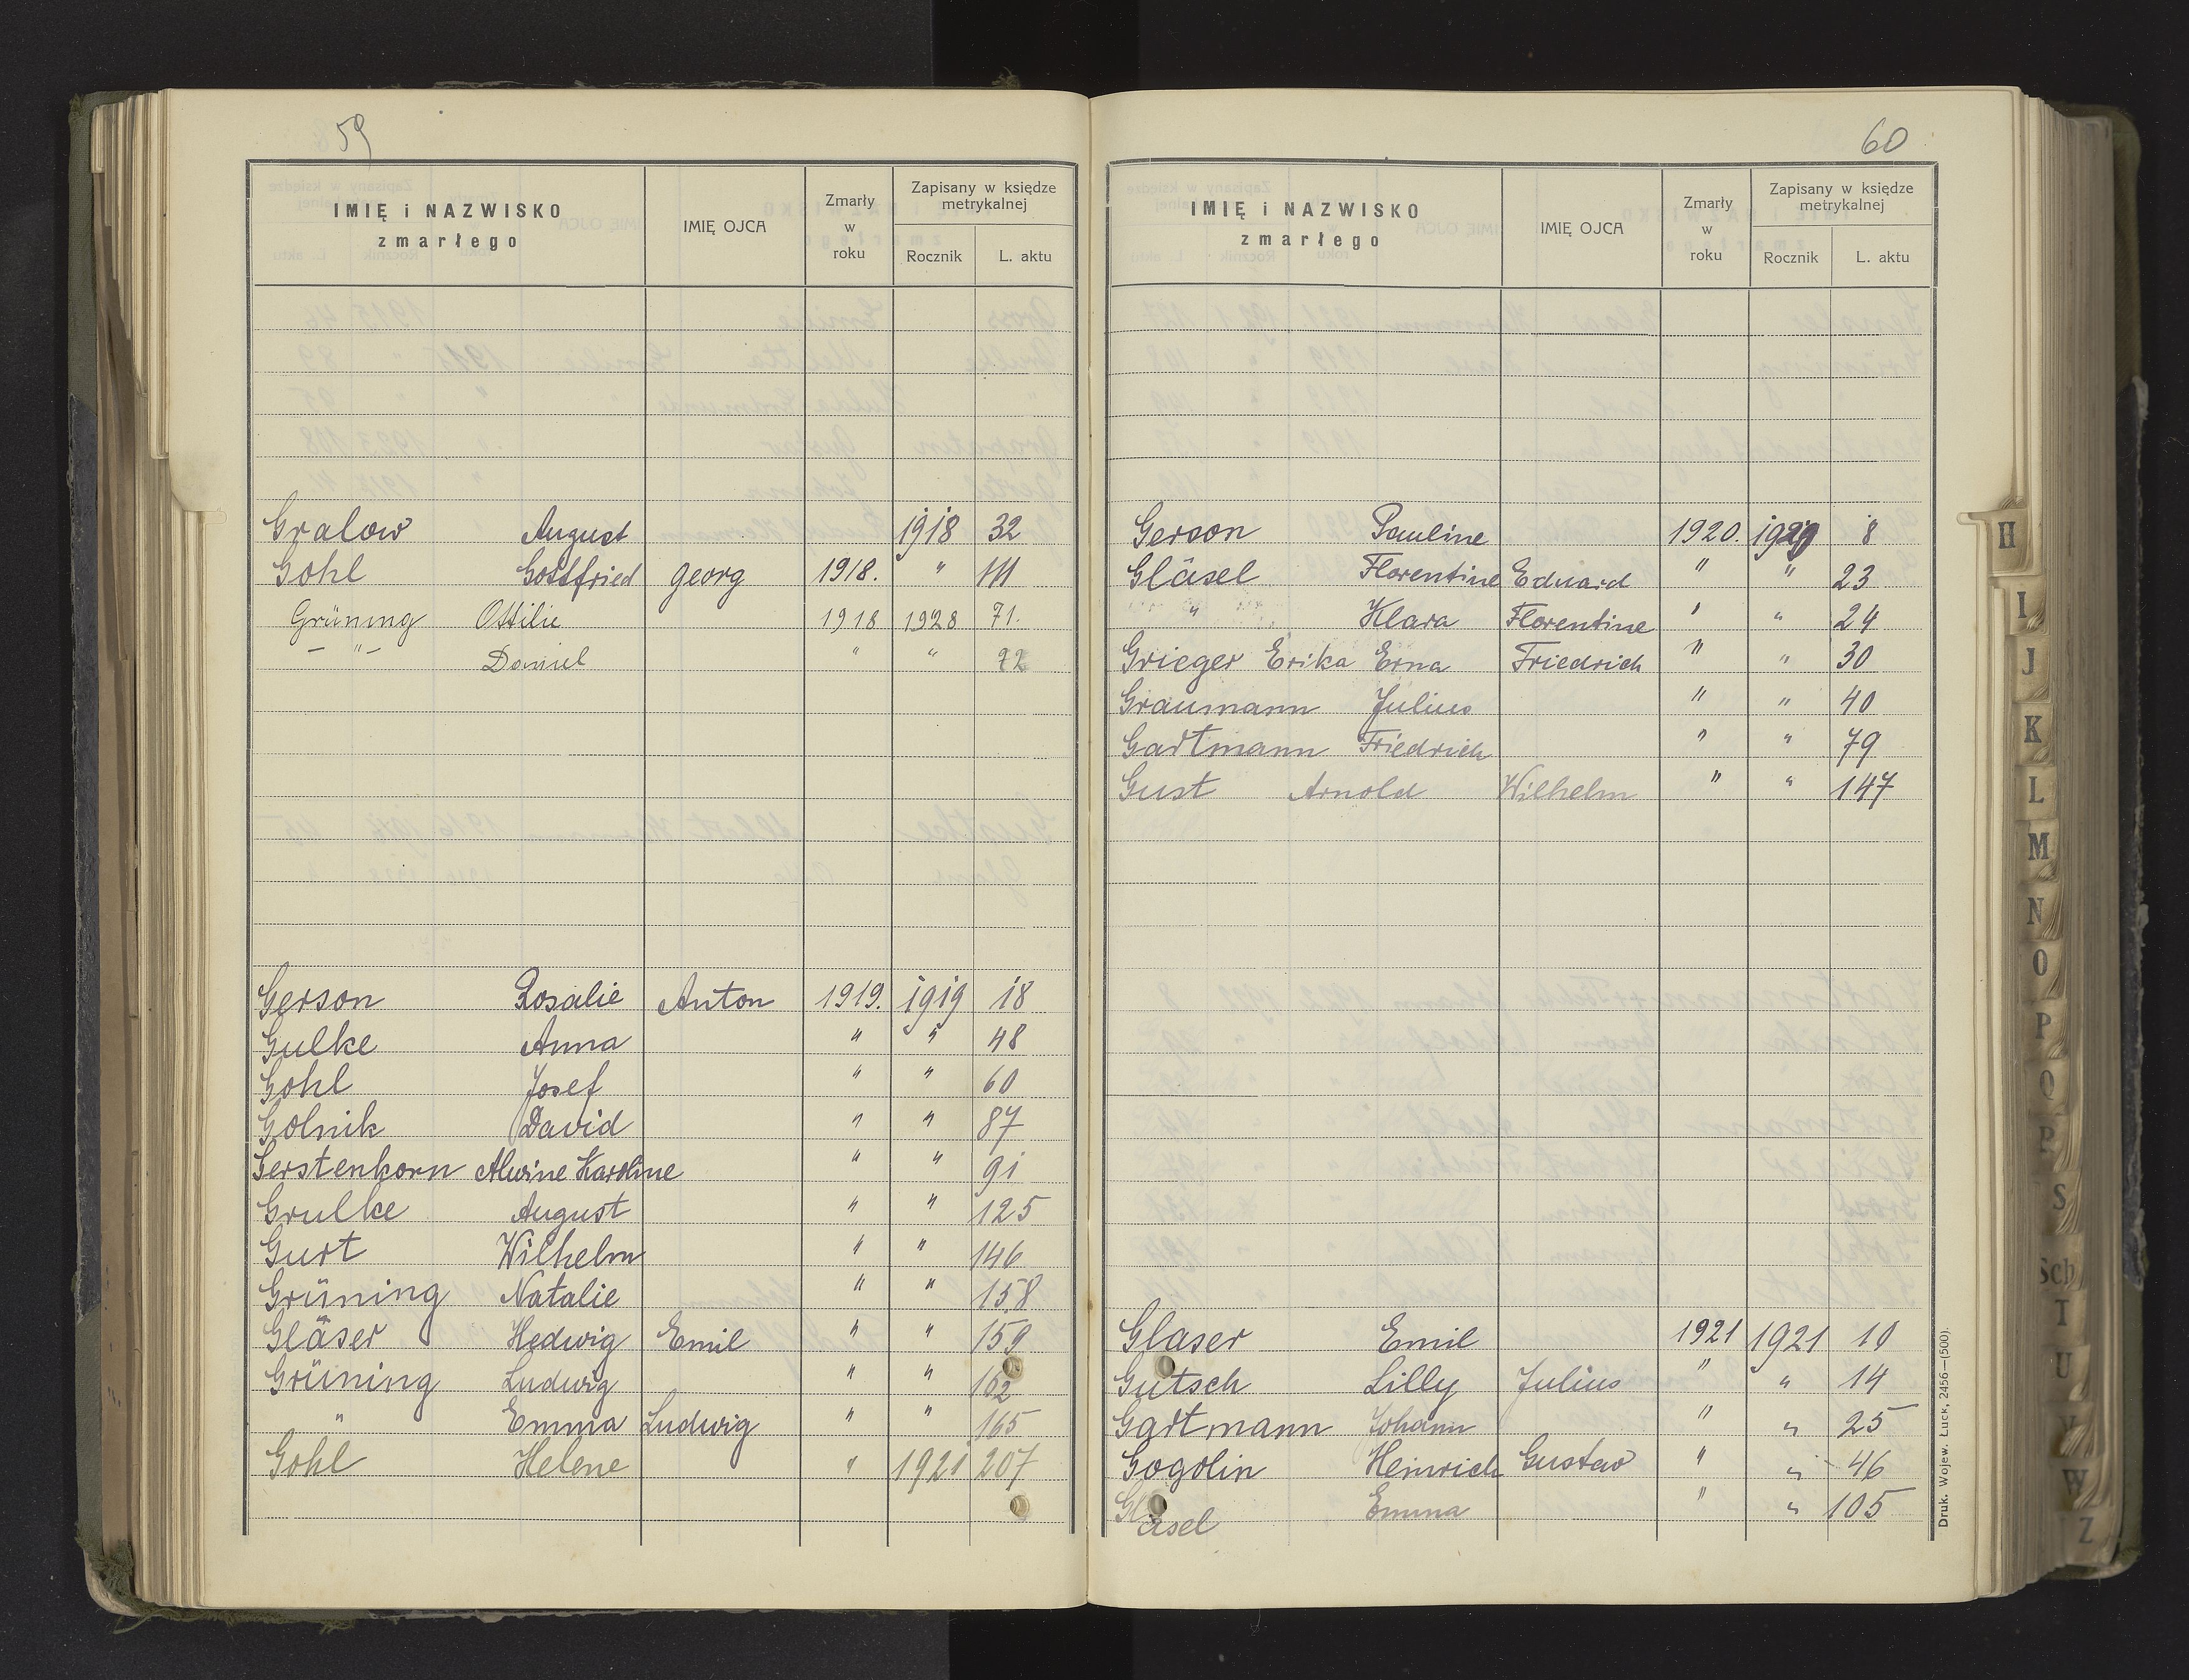 59
IMIĘ i NAZWISKO
zmarłego
IMIĘ OJCA
Zmarły
w
roku
Zapisany w księdze
metrykalnej
Rocznik L. aktu
Gralow August 1918 32
Gohl Gottfried Georg 1918. " 111
Grüning Ottilie 1918 1928 71.
— " — Daniel " " 72
Gerson Rosalie Anton 1919. 1919 18
Gulke Anna " " 48
Gohl Josef " " 60
Golnik David " " 87
Gerstenkorn Alwine Karoline " " 91
Grulke August " " 125
Gurt Wilhelm " " 146
Grüning Natalie " " 158
Gläser Hedwig Emil " " 159
Grüning Ludwig " " 162
" Emma Ludwig " " 165
Gohl Helene " 1921 207
60
IMIĘ i NAZWISKO
zmarłego
IMIĘ OJCA
Zmarły
w
roku
Zapisany w księdze
metrykalnej
Rocznik L. aktu
Gerson Pauline 1920. 1920 8
Gläsel Florentine Eduard " " 23
" Klara Florentine " " 24
Grieger Erika Erna Friedrich " " 30
Graumann Julius " " 40
Gartmann Friedrich " " 79
Gust Arnold Wilhelm " " 147
Glaser Emil 1921 1921 10
Gutsch Lilly Julius " " 14
Gartmann Johann " " 25
Gogolin Heinrich Gustav " " 46
Gläsel Emma " " 105
Druk. Wojew. Łuck, 2456—(500).
H
I
J
K
L
M
N
O
P
Q
R
S
Sch
T
U
V
W
Z